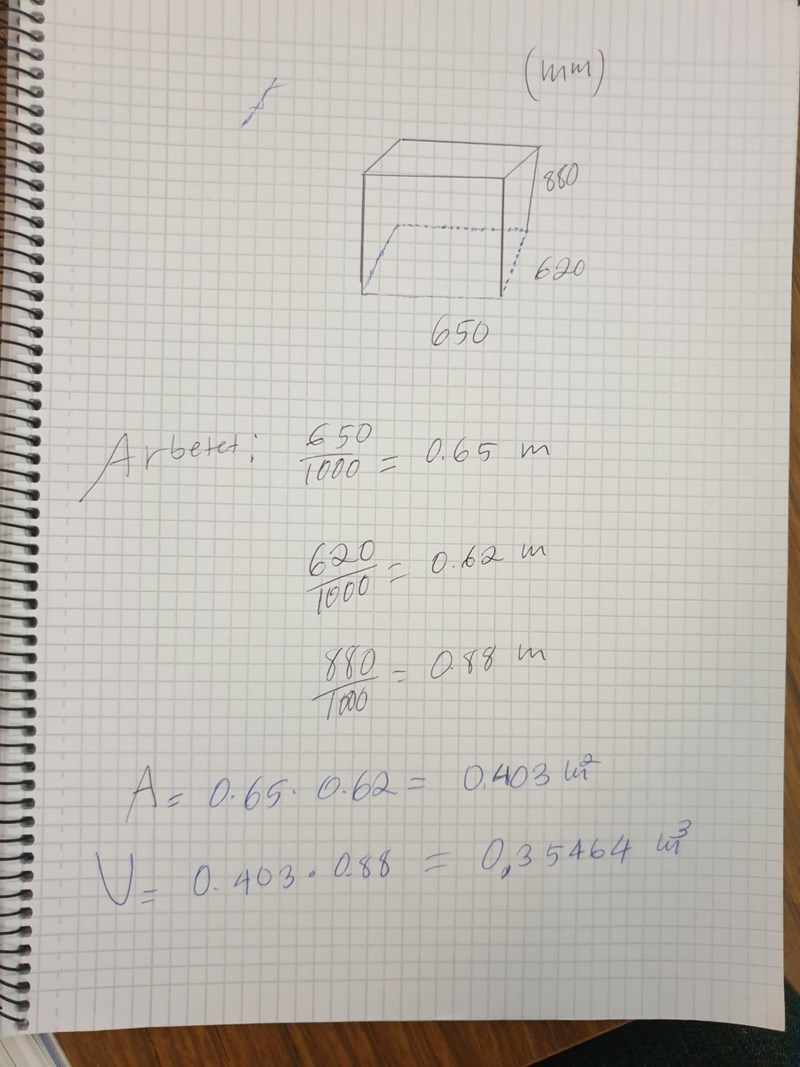 (mm)
880
620
650
Arbetet: 650/1000 = 0.65 m
620/1000 = 0.62 m
880/1000 = 0.88 m
A = 0.65 · 0.62 = 0.403 m²
V = 0.403 · 0.88 = 0,35464 m³